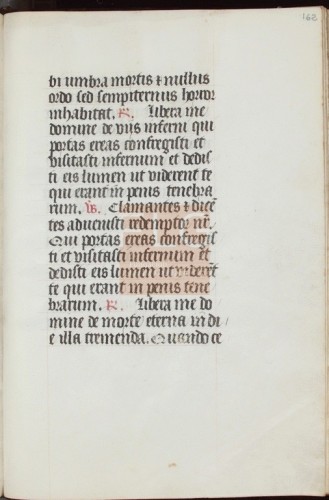 162
bi umbra mortis & nullus
ordo sed sempiternus horror
inhabitat. R. Libera me
domine de viis inferni qui
portas ereas confregisti et
visitasti infernum et dedis
ti eis lumen ut viderent te
qui erant in penis tenebra
rum. V. Clamantes & dicē
tes advenisti redemptor nr̄.
Qui portas ereas confregis
ti et visitasti infernum et
dedisti eis lumen ut viderēt
te qui erant in penis tene
brarum. R. Libera me do
mine de morte eterna in di
e illa tremenda. Quando ce